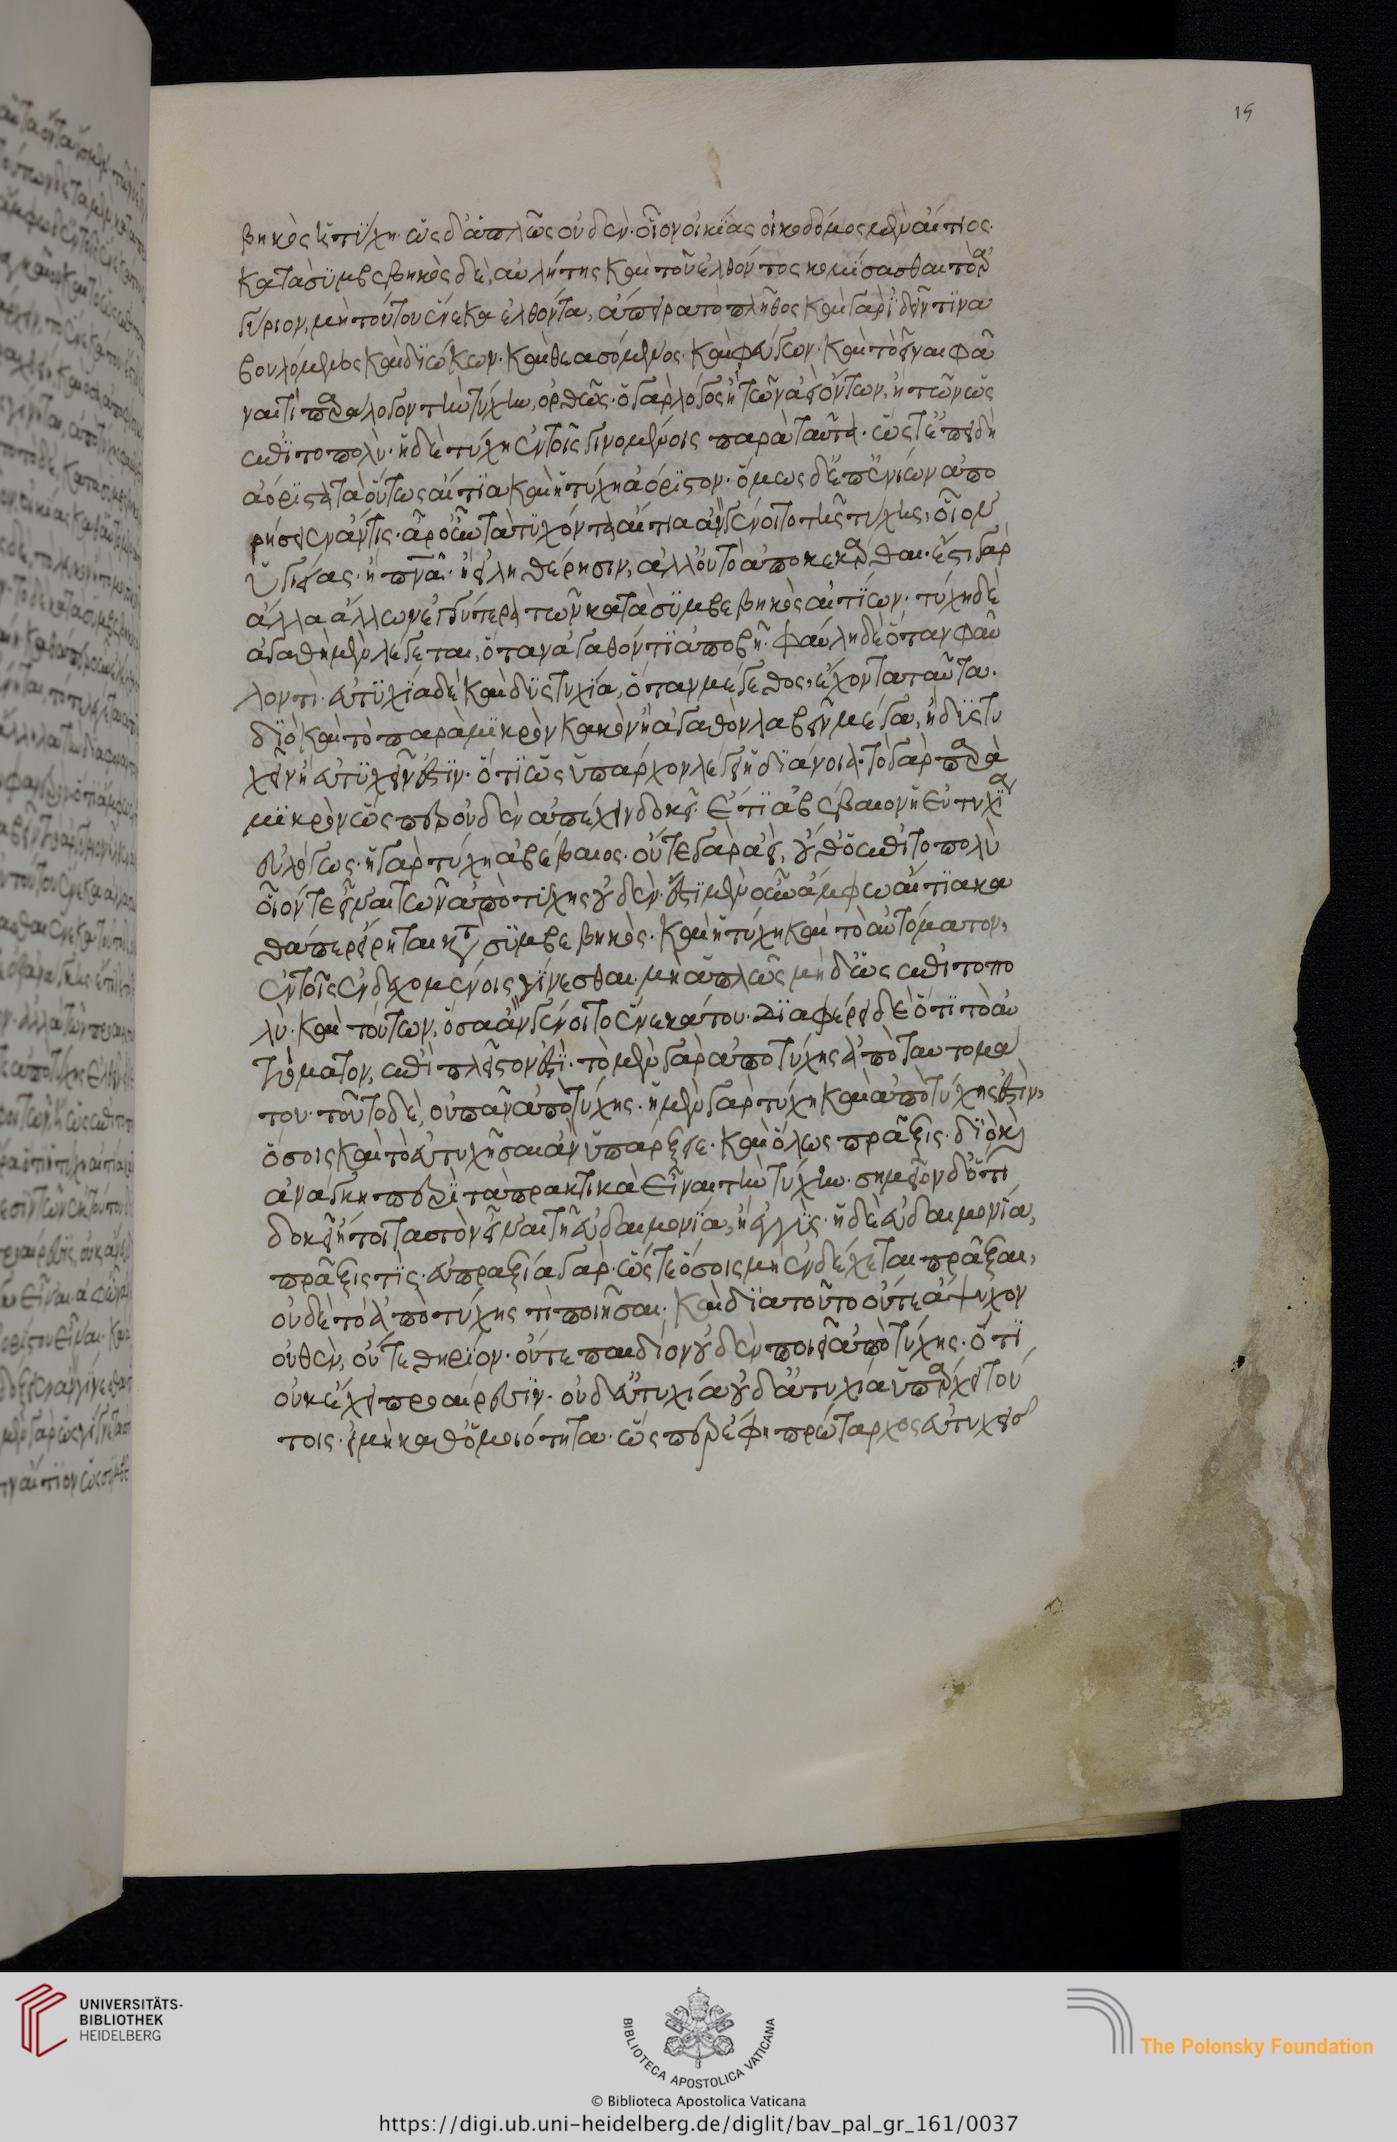 15
βηκὸς ἡ τύχη· ὡς δ' ἁπλῶς οὐδέν· οἷον οἰκίας οἰκοδόμος μὲν αἴτιος·
κατὰ συμβεβηκὸς δὲ, αὐλητὴς καὶ τοῦ ἐλθόντος κομίσασθαι τὸ ἀρ
γύριον, μὴ τούτου ἕνεκα ἐλθόντα, ἄπειρα τὸ πλῆθος καὶ γὰρ ἰδεῖν τινα
βουλόμενος καὶ διώκων· καὶ θεασόμενος· καὶ φεύγων· καὶ τὸ εἶναι φά
ναι τι παράλογον τὴν τύχην, ὀρθῶς· ὁ γὰρ λόγος ἢ τῶν ἀεὶ ὄντων, ἢ τῶν ὡς
ἐπὶ τὸ πολύ· ἡ δὲ τύχη ἐν τοῖς γινομένοις παρὰ ταῦτα· ὥστ' ἐπειδὴ
ἀόριστα τὰ οὕτως αἴτια καὶ ἡ τύχη ἀόριστον· ὅμως δ' ἐπ' ἐνίων ἀπο
ρήσειεν ἄν τις· ἆρ' οὖν τὰ τυχόντα αἴτια ἂν γένοιτο τῆς τύχης, οἷον
ὑγιείας· ἢ πνεῦμα· ἢ εἵλη θέρησιν, ἀλλ' οὐ τὸ ἀποκεκάρθαι· ἔστι γὰρ
ἄλλα ἄλλων ἐγγύτερα τῶν κατὰ συμβεβηκὸς αἰτίων· τύχη δὲ
ἀγαθὴ μὲν λέγεται, ὅταν ἀγαθόν τι ἀποβῇ· φαύλη δὲ ὅταν φαῦ
λόν τι· εὐτυχία δὲ καὶ δυστυχία, ὅταν μέγεθος ἔχοντα ταῦτα·
διὸ καὶ τὸ παρὰ μικρὸν κακὸν ἢ ἀγαθὸν λαβεῖν μέγα, ἢ δυστυ
χεῖν ἢ εὐτυχεῖν ἐστίν· ὅτι ὡς ὑπάρχον λέγει ἡ διάνοια· τὸ γὰρ παρὰ
μικρὸν ὥσπερ οὐδὲν ἀπέχειν δοκεῖ· ἔτι ἀβέβαιον ἡ εὐτυχία
εὐλόγως· ἡ γὰρ τύχη ἀβέβαιος· οὔτε γὰρ ἀεί, οὔθ' ὡς ἐπὶ τὸ πολὺ
οἷόν τε εἶναι τῶν ἀπὸ τύχης οὐδέν· ἔστι μὲν οὖν ἄμφω αἴτια κα
θάπερ εἴρηται κατὰ συμβεβηκὸς· καὶ ἡ τύχη καὶ τὸ αὐτόματον,
ἐν τοῖς ἐνδεχομένοις γίνεσθαι μὴ ἁπλῶς μὴ δ' ὡς ἐπὶ τὸ πο
λύ· καὶ τούτων, ὅσα ἂν γένοιτο ἕνεκά του· διαφέρει δὲ ὅτι τὸ αὐ
τόματον, ἐπὶ πλεῖόν ἐστι· τὸ μὲν γὰρ ἀπὸ τύχης ἀπὸ ταυτομά
του· τοῦτο δὲ, οὐ πᾶν ἀπὸ τύχης· ἡ μὲν γὰρ τύχη καὶ ἀπὸ τύχης ἐστίν,
ὅσοις καὶ τὸ εὐτυχῆσαι ἂν ὑπάρξειε· καὶ ὅλως πρᾶξις· διὸ καὶ
ἀνάγκη περὶ τὰ πρακτικὰ εἶναι τὴν τύχην· σημεῖον δ' ὅτι
δοκεῖ ἤτοι ταυτὸν εἶναι τῇ εὐδαιμονίᾳ, ἢ ἐγγύς· ἡ δὲ εὐδαιμονία,
πρᾶξις τίς· εὐπραξία γάρ· ὥστε ὅσοις μὴ ἐνδέχεται πρᾶξαι,
οὐδὲ τὸ ἀπὸ τύχης τι ποιῆσαι· καὶ διὰ τοῦτο οὔτε ἄψυχον
οὐθέν, οὔτε θηρίον· οὔτε παιδίον οὐδὲν ποιεῖ ἀπὸ τύχης· ὅτι
οὐκ ἔχει προαίρεσιν· οὐδ' εὐτυχία οὐδ' ἀτυχία ὑπάρχει τού
τοις· εἰ μὴ καθ' ὁμοιότητα· ὥσπερ ἔφη πρώταρχος εὐτυχεῖς
UNIVERSITÄTS-
BIBLIOTHEK
HEIDELBERG
BIBLIOTECA APOSTOLICA VATICANA
The Polonsky Foundation
© Biblioteca Apostolica Vaticana
https://digi.ub.uni-heidelberg.de/diglit/bav_pal_gr_161/0037